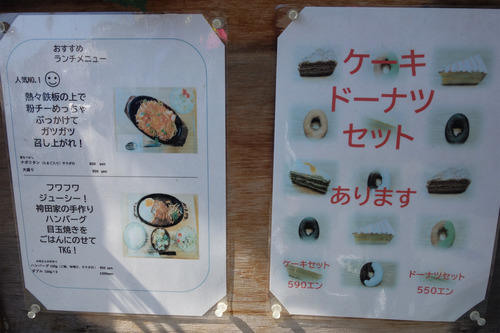 おすすめ
ランチメニュー
人気NO.1
熱々鉄板の上で
粉チーめっちゃ
ぶっかけて
ガツガツ
召し上がれ!
ナポリタン
大盛り
フワフワ
ジューシー!
袴田家の手作り
ハンバーグ
目玉焼きを
ごはんにのせて
TKG!
ケーキ
ドーナツ
セット
あります
ケーキセット
590エン
ドーナツセット
550エン